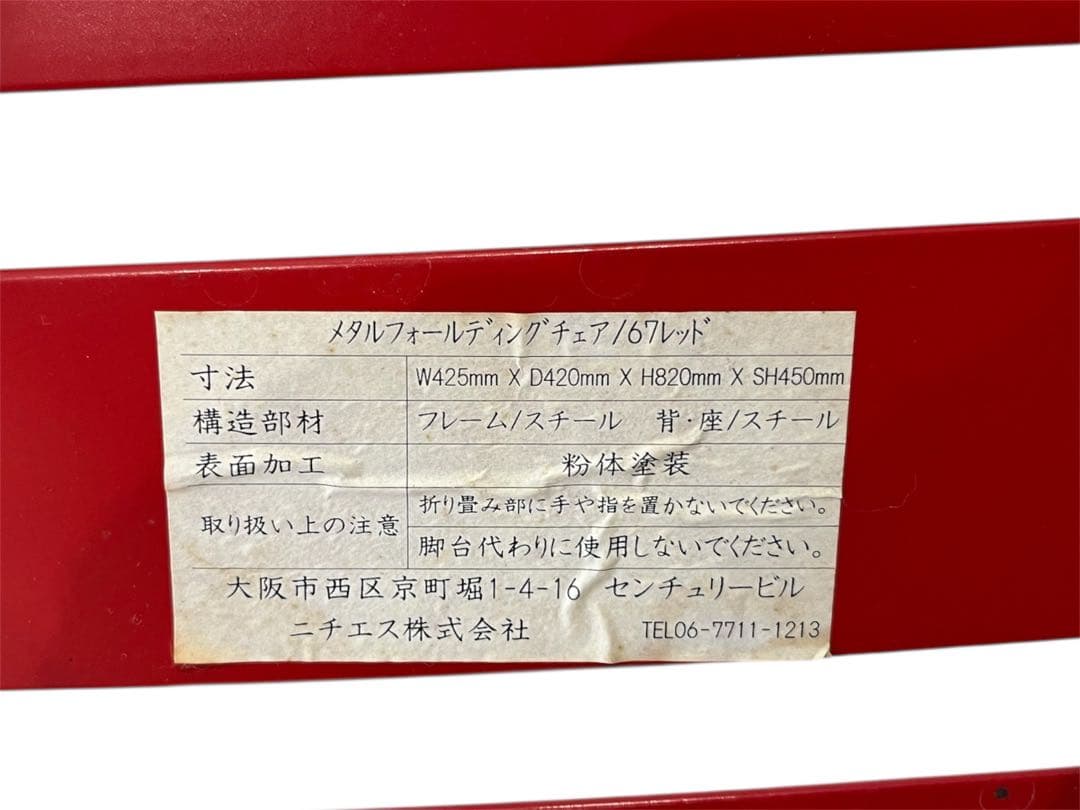 メタルフォールディングチェア/67レッド
寸法 W425mm X D420mm X H820mm X SH450mm
構造部材 フレーム/スチール 背・座/スチール
表面加工 粉体塗装
取り扱い上の注意 折り畳み部に手や指を置かないでください。
脚台代わりに使用しないでください。
大阪市西区京町堀1-4-16 センチュリービル
ニチエス株式会社 TEL06-7711-1213